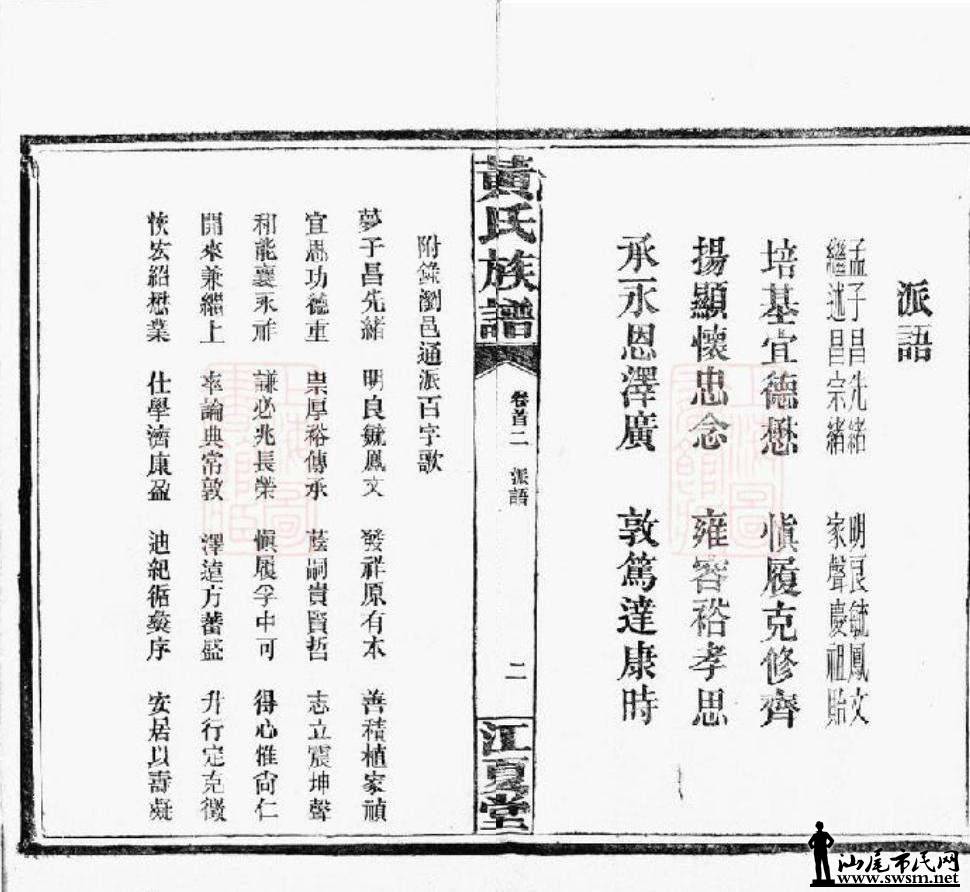 派語
孟子昌先緒 明良毓鳳文
繼述昌宗緒 家聲慶祖貽
培基宜德懋 慎履克修齊
揚顯懷忠念 雍容裕孝思
承永恩澤廣 敦篤達康時
黃氏族譜
卷首二 派語
二
江夏堂
附錄瀏邑通派百字歌
夢于昌先緒 明良毓鳳文 發祥原有本 善積植家禎
宜恩功德重 崇厚裕傳承 蔭嗣貴賢哲 志立震坤聲
和能襄永祚 謙必兆長榮 愼履孚中可 得心惟尙仁
開來兼繼上 率論典常敦 澤遠方蕃盛 升行定克徵
恢宏紹懋業 仕學濟康盈 迪紀循彜序 安居以壽凝
汕尾市民网
www.swsm.net